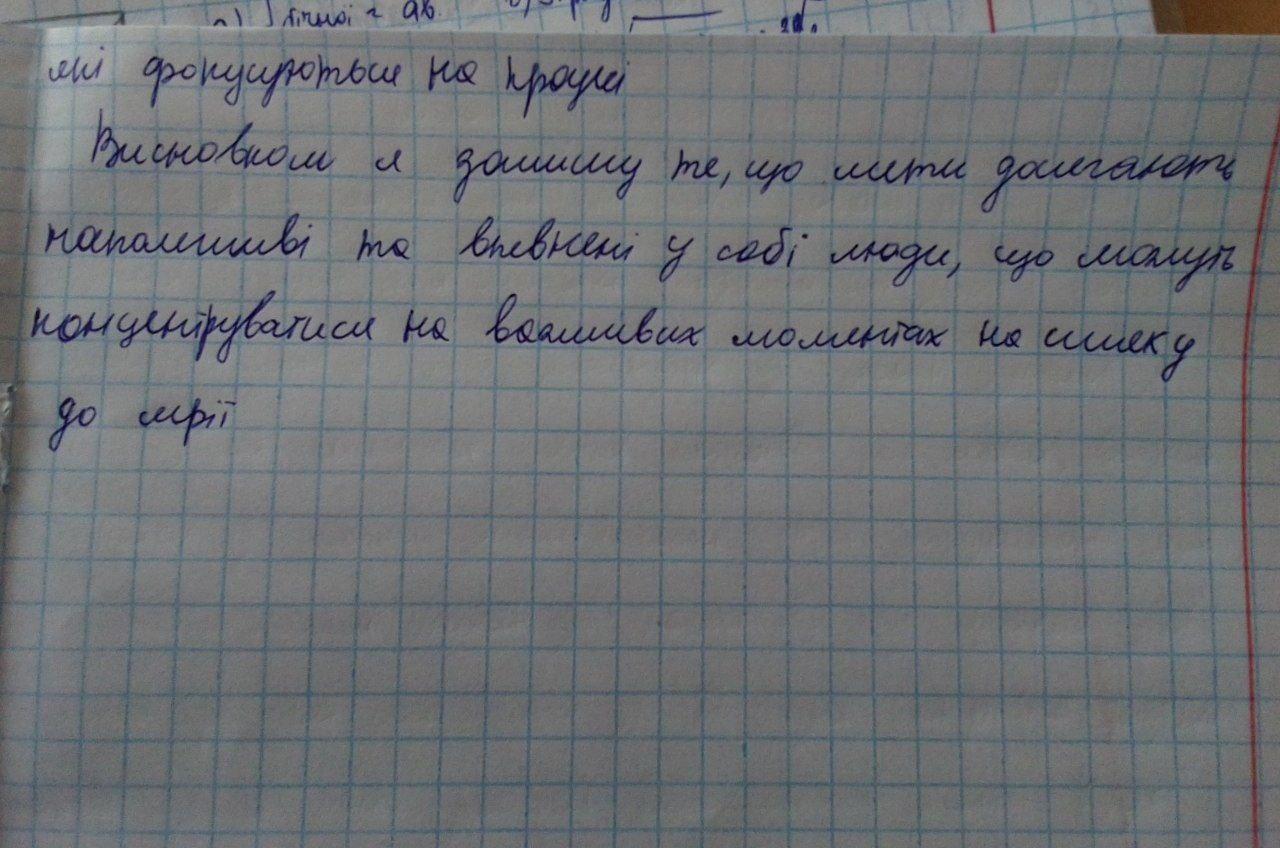 які фокусуються на праці
Висновком я залишу те, що мети досягають
наполегливі та впевнені у собі люди, що можуть
концентруватися на важливих моментах на шляху
до мрії